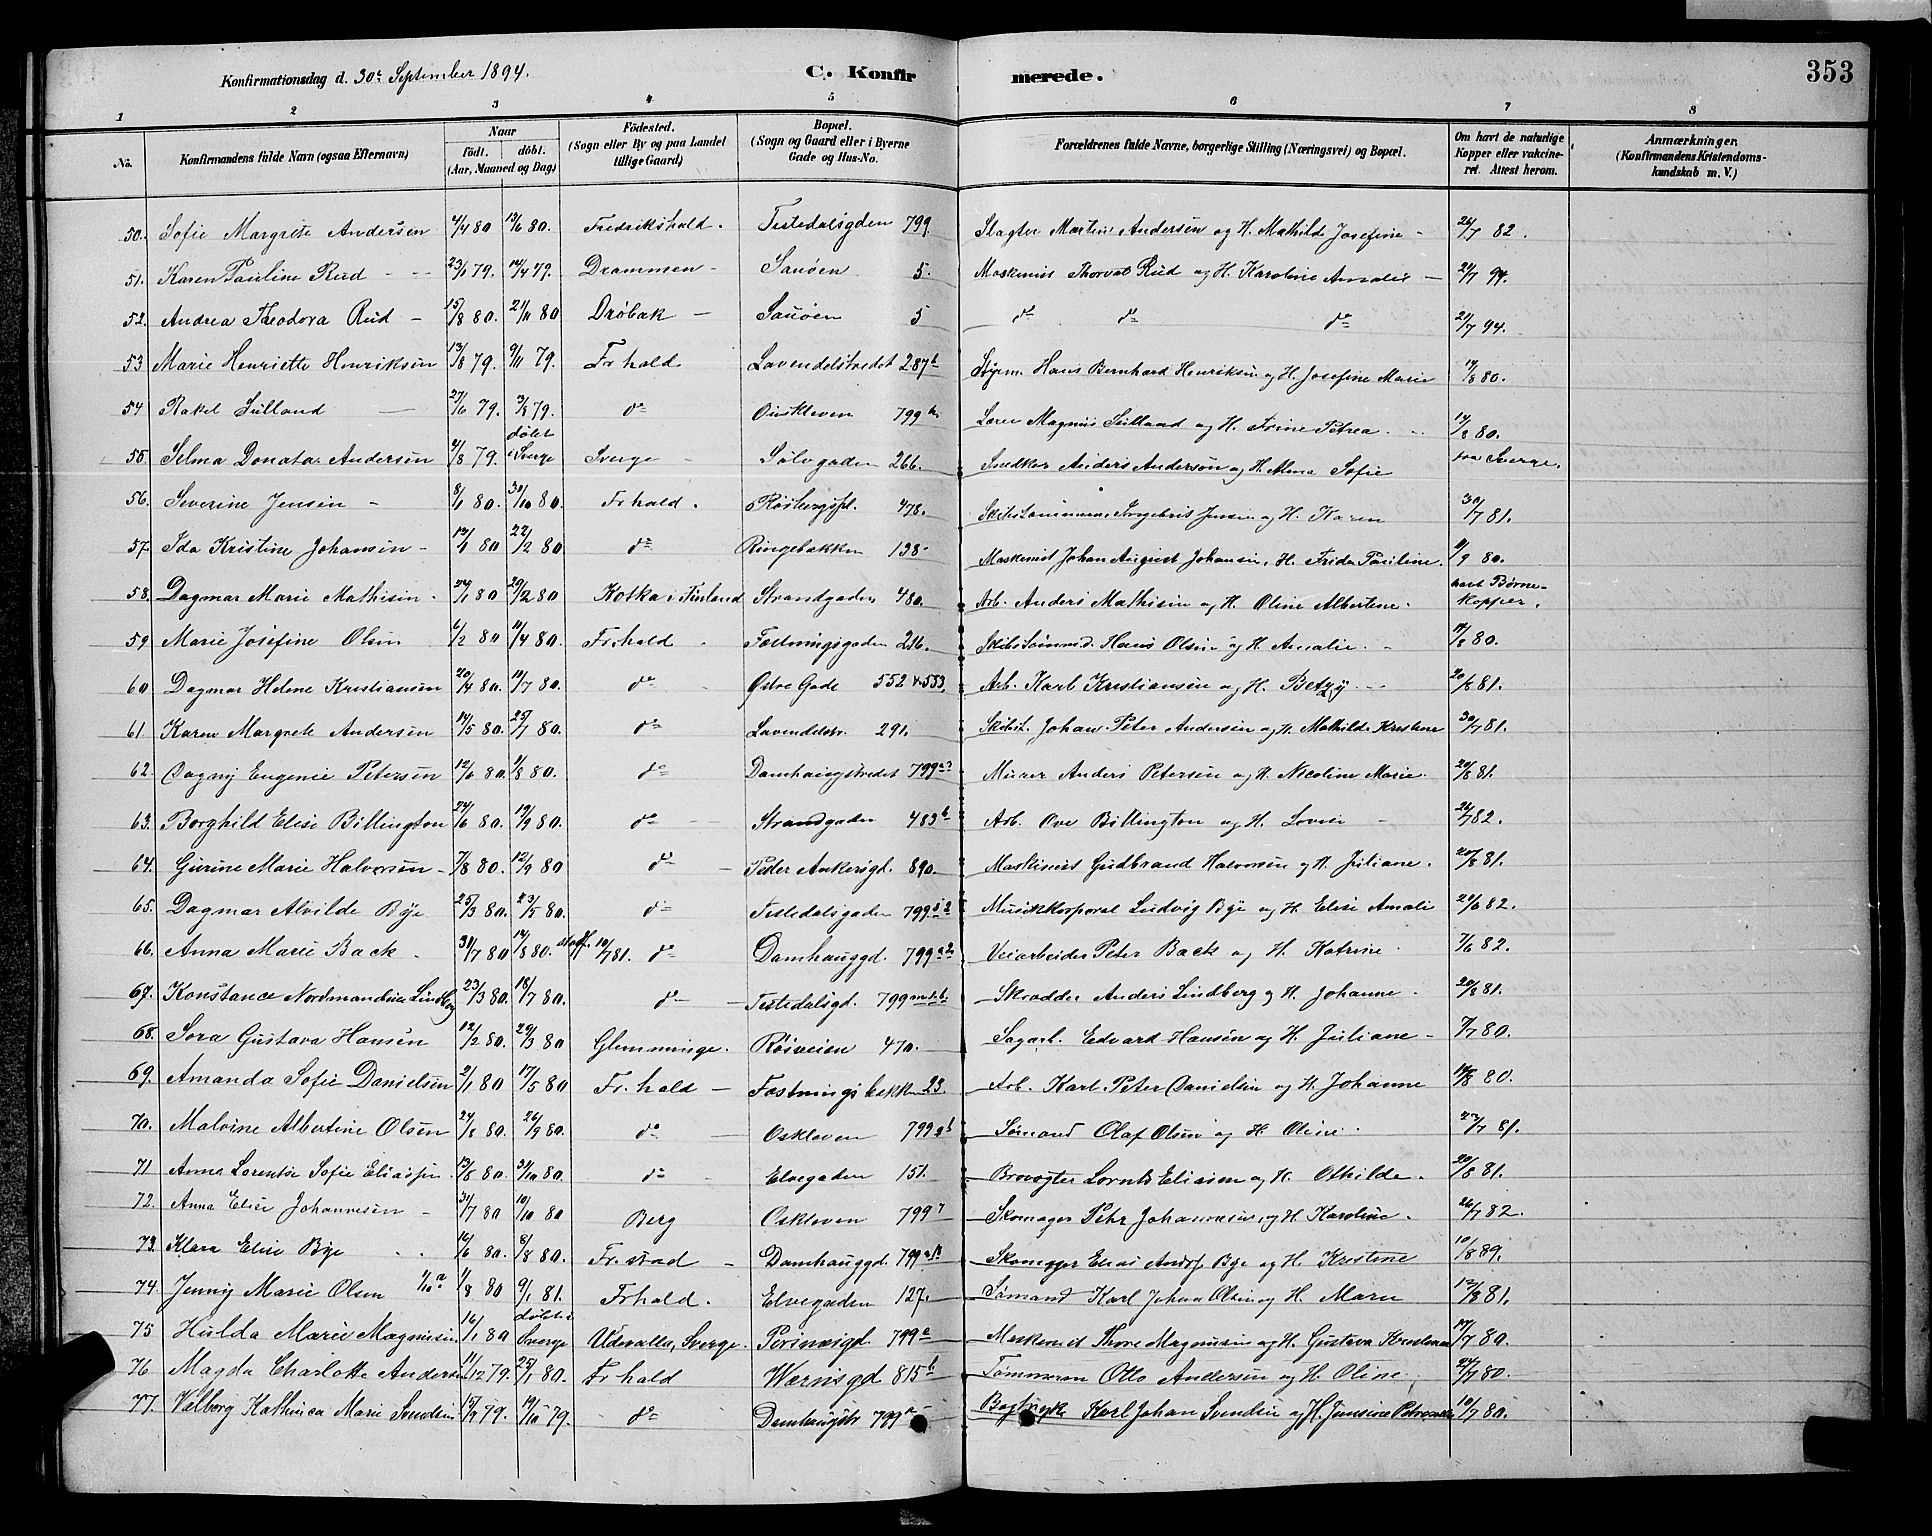 Konfirmationsdag d. 30te September 1894.
C. Konfirmerede.
353
1 2 3 4 5 6 7 8
No. Konfirmandens fulde Navn (ogsaa Efternavn) Naar født. døbt. (Aar, Maaned og Dag) Fødested. (Sogn eller By og paa Landet tillige Gaard) Bopæl. (Sogn og Gaard eller i Byerne Gade og Hus-No. Forældrenes fulde Navne, borgerlige Stilling (Næringsvei) og Bopæl. Om havt de naturlige Kopper eller vakcineret. Attest herom. Anmærkninger. (Konfirmandens Kristendomskundskab m. V.)
50. Sofie Margrete Andersen 4/4 80 13/6 80. Fredrikshald. Tistedalsgden 799 Slagter Martin Andersen og H. Mathilde Josefine 26/7 82.
51. Karen Pauline Rud 23/1 79. 14/4 79. Drammen Sauøen 5. Maskinist Thorval Rud og H. Karoline Amalie 21/7 94.
52. Andrea Theodora Rud 15/8 80. 21/11 80 Drøbak Sauøen 5 do do do 21/7 94.
53 Marie Henriette Henriksen 13/8 79. 9/11 79. Fr hald Lavendelstredet 287b Styrm. Hans Bernhard Henriksen og H. Josefine Marie 14/8 80.
54 Rakel Lilland 27/6 79. 3/8 79. do Ouskleven 799 Lærer Magnus Lilland og H. Trine Petrea 14/8 80.
55. Selma Donata Andersen 2/8 79. døbt i Sverge Sverge Sølvgaden 266. Snedker Anders Anderson og H. Alma Sofie paa Sverge.
56. Severine Jensen 8/1 80. 30/10 80 Fr hald. Røsbergspl. 478. Skibstømmerm. Ingebret Jensen og H. Karen 30/7 81.
57. Ida Kristine Johansen 13/1 80 22/2 80 do Ringebakken 138. Maskinist Johan August Johansen, H. Frida Pauline. 11/9 80.
58. Dagmar Marie Mathisen 24/1 80 29/2 80 Kotka i Finland Strandgaden 480. Arb. Anders Mathisen og H. Oline Albertine. havt Børnekopper.
59 Marie Josefine Olsen 6/2 80 11/4 80. Fr. hald Fæstningsgaden 216. Skibstømmerm. Hans Olsen og H. Amalie. 14/8 80.
60 Dagmar Helene Kristiansen 20/4 80. 11/7 80. do Østre Gade 552 & 553. Arb. Karl Kristiansen og H. Betzy 20/8 81.
61. Karen Margrete Andersen 14/5 80. 25/7 80. do Lavendelstr. 291. Skibst. Johan Peter Andersen og H. Mathilde Kristine 30/7 81.
62. Dagny Eugenie Petersen 12/6 80. 1/8 80. do Damhaugstredet 799 Murer Anders Petersen og H. Nicoline Marie. 20/8 81.
63. Borghild Elise Billington 24/6 80. 19/9 80. do Strandgaden 483b Arb. Ove Billington og H. Lovise 26/7 82.
64. Gurine Marie Halvorsen 7/8 80. 12/9 80 do Peder Ankersgd. 890. Maskinist Gudbrand Halvorsen og H. Juliane. 20/8 81.
65. Dagmar Alvilde Bye 25/3 80. 23/5 80. do Tistedalsgaden 799 Musikkorporal Ludvig Bye og H. Elise Amalie 24/6 82.
66. Anna Marie Back 31/7 80 14/8 80. 10/7 81. do Damhauggd. 799 Veiarbeider Peter Back og H. Katrine 7/6 82.
67. Konstance Nordmandine Lindberg 23/3 80. 18/7 80. do Tistedalsgd. 799 Skrædder Anders Lindberg og H. Johanne 20/8 81.
68. Sora Gustava Hansen 12/2 80. 29/3 80 Glemminge. Røsveien 470. Sagarb. Edvard Hansen og H. Juliane 7/7 80.
69. Amanda Sofie Danielsen 2/1 80. 17/5 80 Fr. hald Fæstningsbakken 23. Arb. Karl Peter Danielsen og H. Johanne 14/8 80.
70. Malvine Albertine Olsen 24/8 80. 26/9 80. do Oskleven 799 Sømand Olaf Olsen og H. Oline. 23/7 81.
71 Anna Lorentse Sofie Eliassen 13/8 80. 31/10 80. do Elvegaden 151. Brovogter Lornts Eliasen og H. Othilde. 20/8 81.
72. Anna Elise Johannesen 31/7 80 10/10 80 Berg Oskleven 799 Skomager Pehr Johannesen og H. Karoline. 26/7 82.
73. Klara Elise Bye 14/6 80. 8/8 80. Fr. stad Damhauggd. 799 Skomager Elias Andr. Bye og H. Kristine 10/8 89.
74. Jenny Marie Olsen 1/8 80 9/1 81. Frhald. Elvegaden 127. Sømand Karl Johan Olsen og H. Marie 13/8 81.
75 Hulda Marie Magnusen 16/1 80 døbt i Sverge Udevalla, Sverge. Persnæsgd. 799 Maskinist Thore Magnusen og H. Gustava Kristine 17/7 80.
76 Magda Charlotte Andersen 11/12 79. 25/1 80. Fr hald Wærnsgd 815b Tømmerm Otto Andersen og H. Oline. 24/7 80.
77. Valborg Kathinca Marie Svendsen 15/9 79. 19/10 79. do Damhaugstr 799 Bogtryk. Karl Johan Svendsen og H. Jensine 10/7 80.